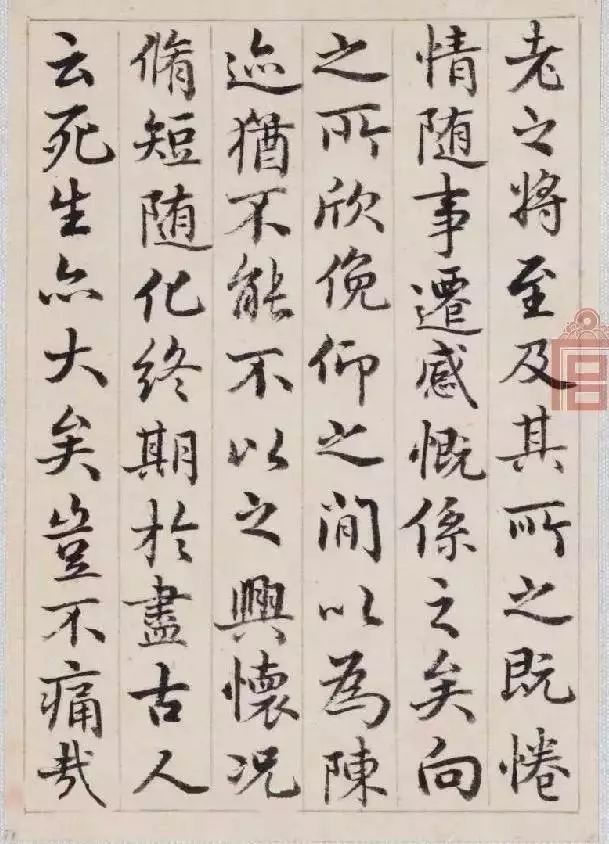 老之将至及其所之既惓
情随事遷感慨係之矣向
之所欣俛仰之間以為陳
迹猶不能不以之興懷况
脩短随化終期於盡古人
云死生亦大矣豈不痛哉